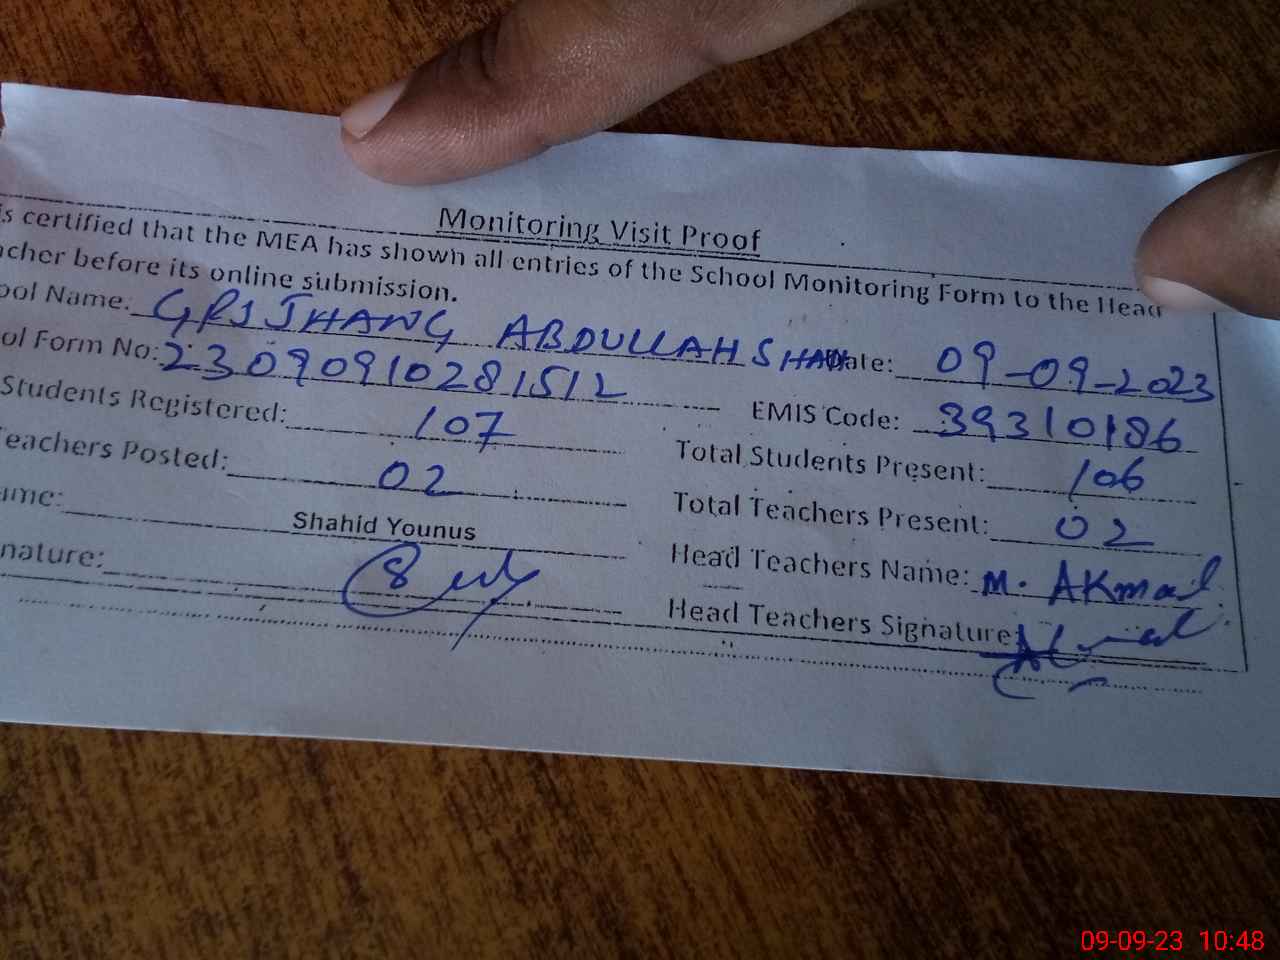 Monitoring Visit Proof
is certified that the MEA has shown all entries of the School Monitoring Form to the Head
acher before its online submission.
ool Name: GPS JHANG ABDULLAH SHAH Date: 09-09-2023
ol Form No: 23090910281512 EMIS Code: 39310186
Students Registered: 107 Total Students Present: 106
eachers Posted: 02 Total Teachers Present: 02
ame: Shahid Younus Head Teachers Name: M. AKmal
nature: Head Teachers Signature: Akmal
09-09-23 10:48